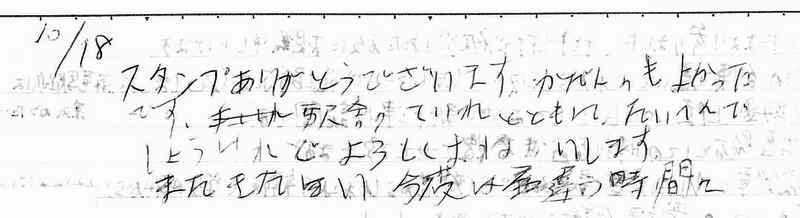 10/18
スタンプありがとうございます。かだんも良かった
です、駅舎の ていれ とともに、たいへんで
しょう けれど よろしくおねがいします
またきたい 今度は の時間に